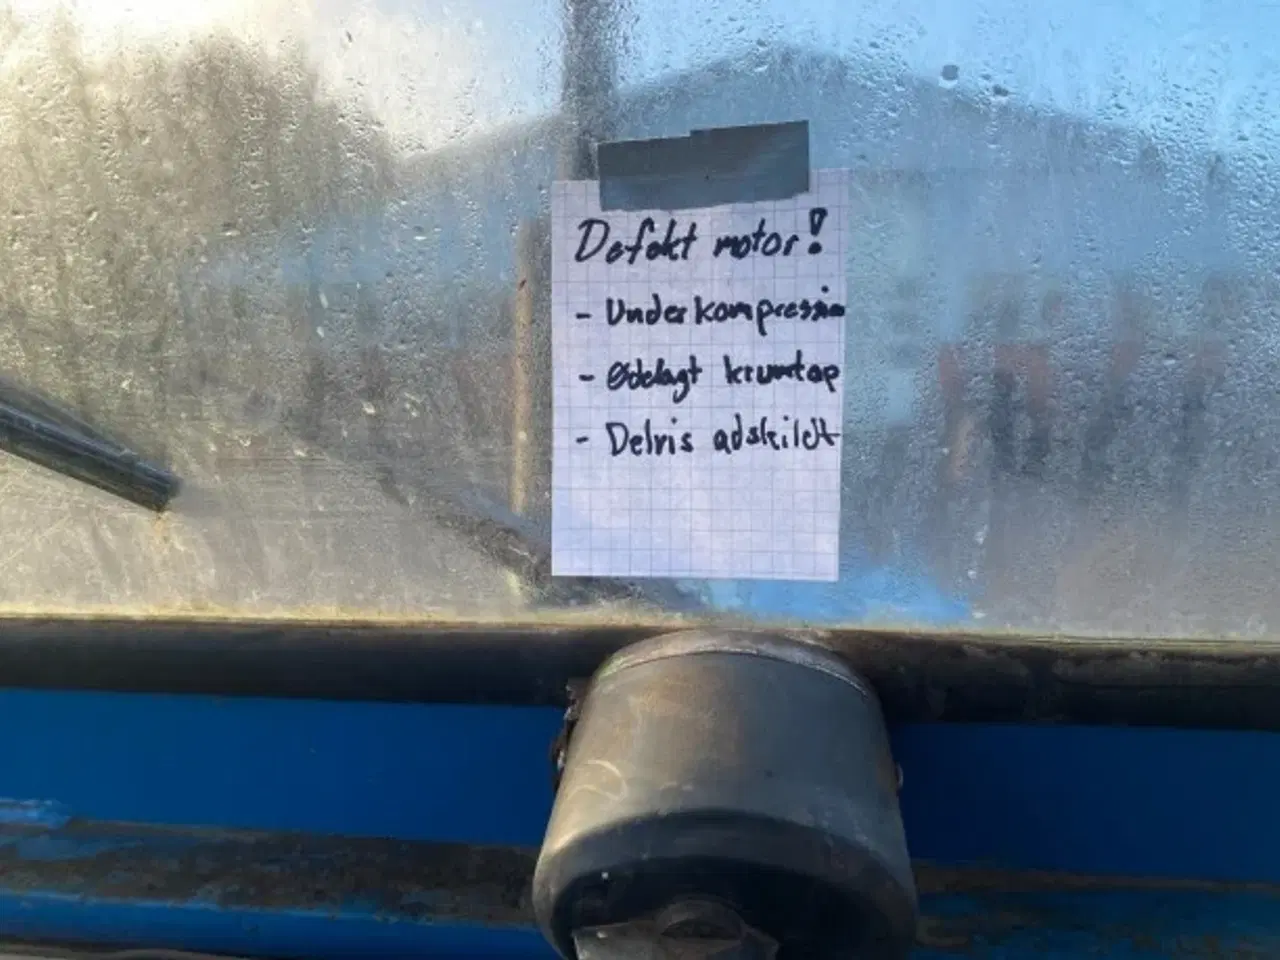 Defekt motor!
- Underkompression
- Ødelagt krumtap
- Delvis adskildt